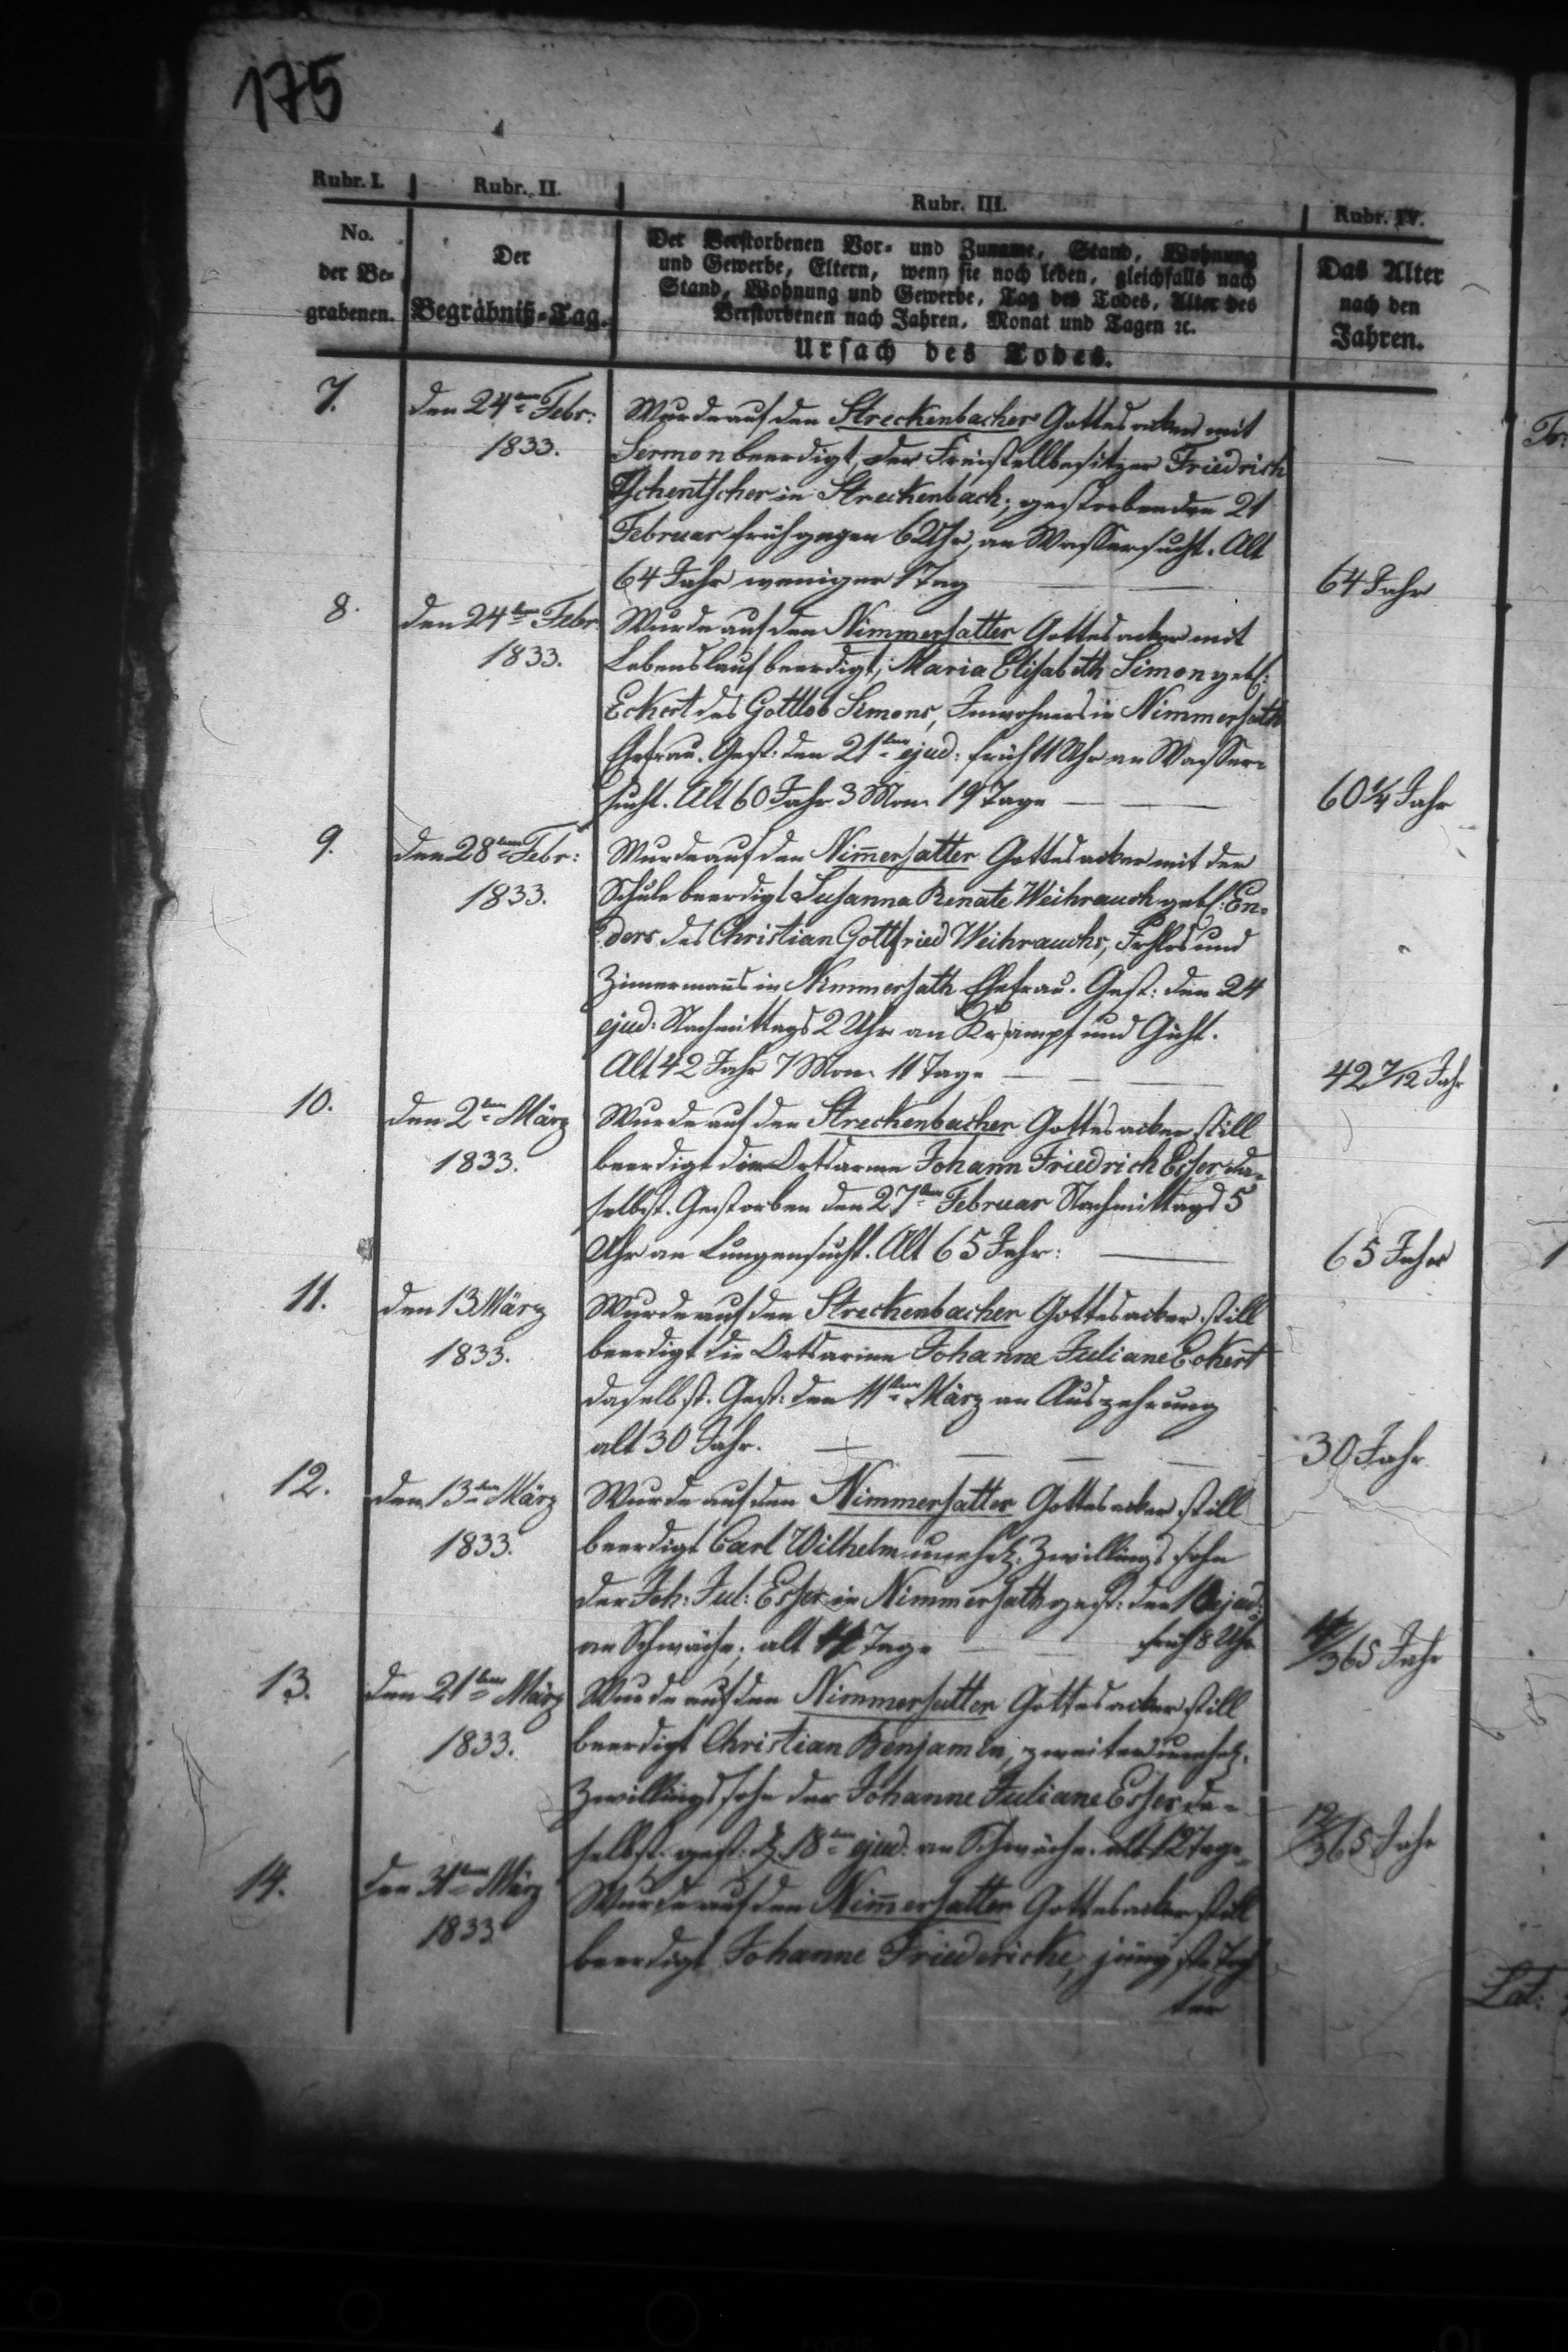 175
Rubr. I.
Rubr. II.
Rubr. III.
Rubr. IV.
No.
der Be-
grabenen.
Der
Begräbniß-Tag.
Der Verstorbenen Vor- und Zuname, Stand, Wohnung
und Gewerbe, Eltern, wenn sie noch leben, gleichfalls nach
Stand, Wohnung und Gewerbe, Tag des Todes, Alter des
Verstorbenen nach Jahren, Monat und Tagen ꝛc.
Ursach des Todes.
Das Alter
nach den
Jahren.
7.
den 24ten Febr:
1833.
Wurde auf den Streckenbacher Gottesacker mit
Sermon beerdigt, der Freistellbesitzer Friedrich
Tschentscher in Streckenbach; gestorben den 21
Februar früh gegen 6 Uhr, an Wassersucht. Alt
64 Jahr weniger 1 Tag
64 Jahr
8.
den 24ten Febr
1833.
Wurde auf den Nimmersatter Gottesacker mit
Lebenslauf beerdigt; Maria Elisabeth Simon geb:
Eckert des Gottlob Simons, Inwohners in Nimmersath
Ehefrau. Gest: den 21ten ejud: früh 11 Uhr an Wasser-
sucht. Alt 60 Jahr 3 Mon. 19 Tage
60 1/4 Jahr
9.
den 28ten Febr:
1833.
Wurde auf den Nimersatter Gottesacker mit der
Schule beerdigt Susanna Renate Weihrauch geb: En-
ders des Christian Gottfried Weihrauchs, und
Zimermans in Nimmersath Ehefrau. Gest: den 24
ejud: Nachmittags 2 Uhr an Krampf und Gicht.
Alt 42 Jahr 7 Mon. 11 Tage
42 7/12 Jahr
10.
den 2ten März
1833.
Wurde auf den Streckenbacher Gottesacker still
beerdigt der Ortsarme Johann Friedrich da-
selbst. Gestorben den 27ten Februar Nachmittags 5
Uhr an Lungensucht. Alt 65 Jahr:
65 Jahr
11.
den 13 März
1833.
Wurde auf den Streckenbacher Gottesacker still
beerdigt die Ortsarme Johanne Juliane Eckert
daselbst. Gest: den 11ten März an Auszehrung
alt 30 Jahr.
30 Jahr
12.
den 13ten März
1833.
Wurde auf den Nimmersatter Gottesacker still
beerdigt Carl Wilhelm unehel. Zwillingssohn
der Joh: Jul: Esser in Nimmersath gest: den 10 ejud:
an Schwäche; alt Tage früh 8 Uhr
/365 Jahr
13.
den 21ten März
1833.
Wurde auf den Nimmersatter Gottesacker still
beerdigt Christian Benjamin, zweiter unehel.
Zwillingssohn der Johanne Juliane Esser da-
selbst. gest: d. 18ten ejud. an Schwäche. alt 12 Tage
12/365 Jahr
14.
den März
1833
Wurde auf den Nimersatter Gottesacker still
beerdigt Johanne Friedericke, jüngste Toch
ter
Lat: